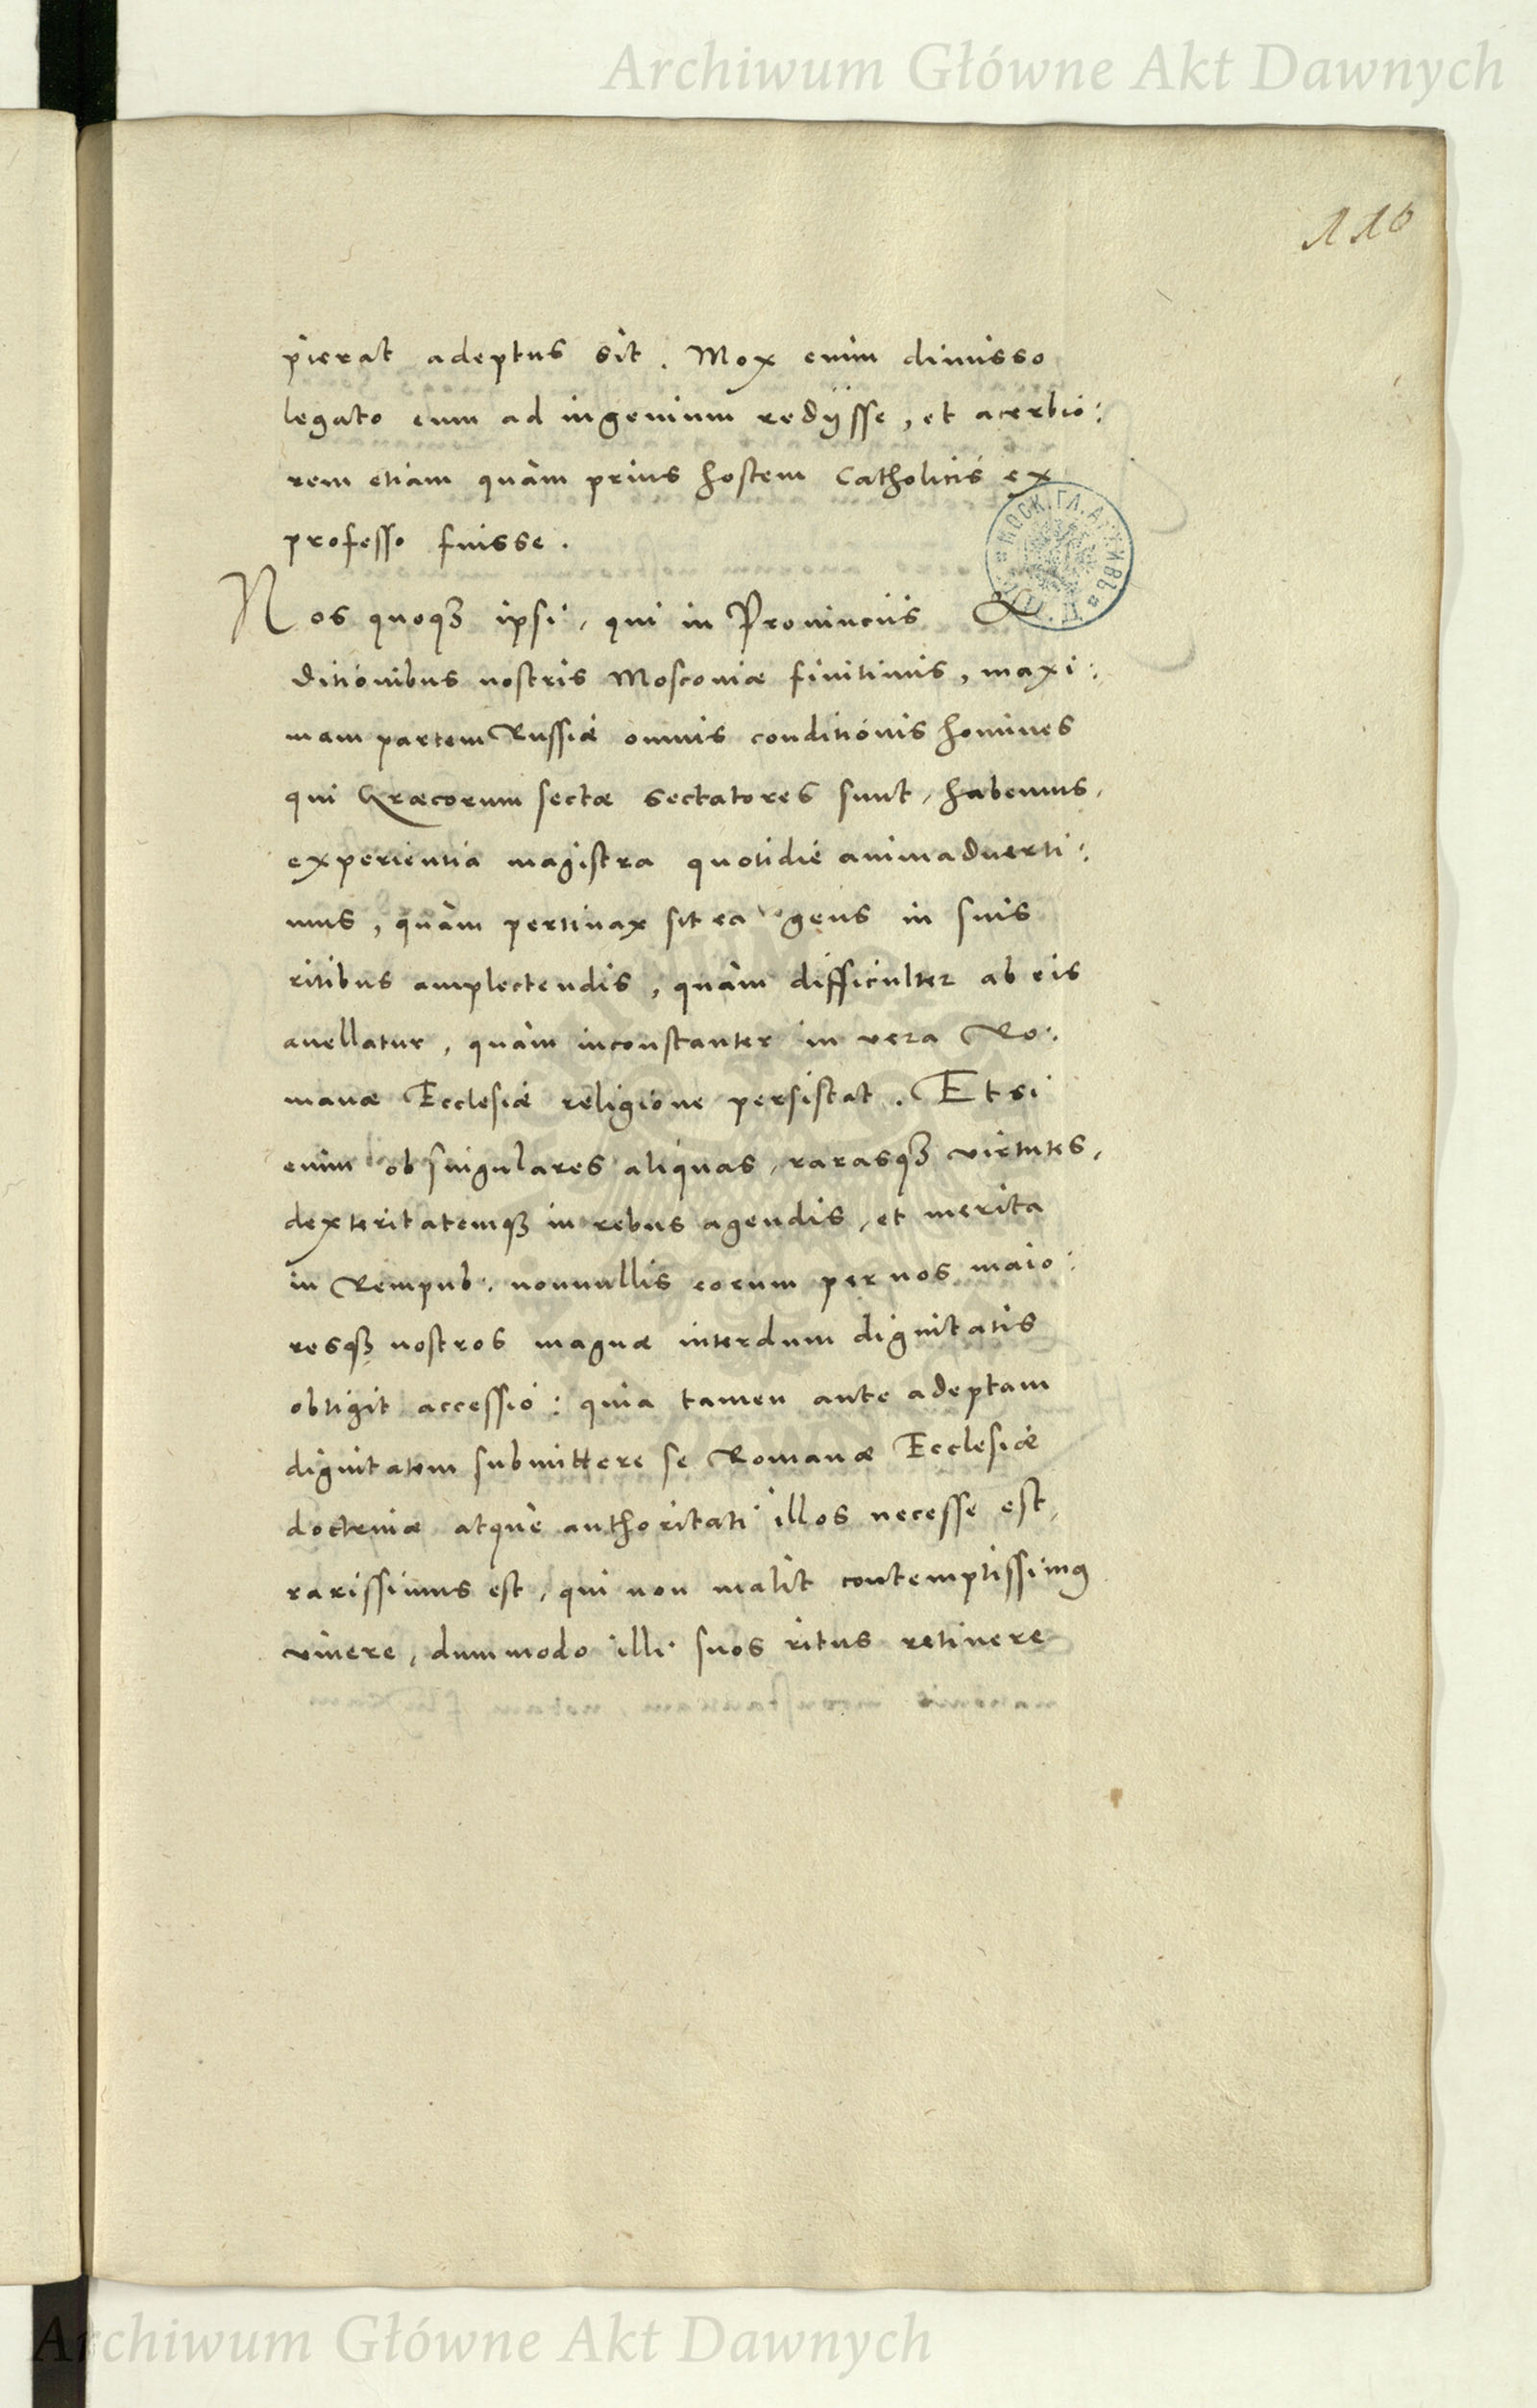 Archiwum Główne Akt Dawnych
116
pierat adeptus sit. Mox enim dimisso
legato eum ad ingenium redijsse, et acerbio:
rem etiam quàm prius hostem Catholicis ex
professo fuisse.
Nos quoqꝫ ipsi, qui in Provinciis &
ditionibus nostris Moscoviæ finitimis, maxi:
mam partem Russiæ omnis conditionis homines
qui Græcorum sectæ sectatores sunt, habemus,
experientia magistra quotidiè animadverti:
mus, quàm pertinax sit ea gens in suis
ritibus amplectendis, quàm difficulter ab eis
avellatur, quàm inconstanter in vera Ro:
manæ Ecclesiæ religione persistat. Etsi
enim ob singulares aliquas, rarasqꝫ virtutes,
dexteritatemqꝫ in rebus agendis, et merita
in Rempub: nonnullis eorum per nos maio:
resqꝫ nostros magnæ interdum dignitatis
obtigit accessio: quia tamen ante adeptam
dignitatem submittere se Romanæ Ecclesiæ
doctrinæ atque authoritati illos necesse est,
rarissimus est, qui non malit contemptissimꝰ
vivere, dummodo illi suos ritus retinere
Archiwum Główne Akt Dawnych